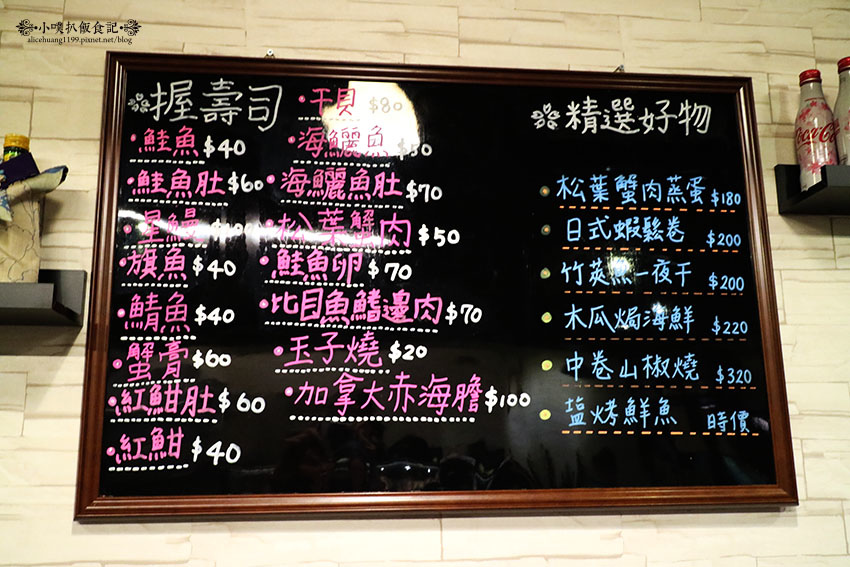 小噗扒飯食記
alicehuang1199.pixnet.net/blog
握壽司
鮭魚 $40
鮭魚肚 $60
星鰻 $100
旗魚 $40
鯖魚 $40
蟹膏 $60
紅魽肚 $60
紅魽 $40
干貝 $80
海鱺魚 $50
海鱺魚肚 $70
松葉蟹肉 $50
鮭魚卵 $70
比目魚鰭邊肉 $70
玉子燒 $20
加拿大赤海膽 $100
精選好物
松葉蟹肉蒸蛋 $180
日式蝦鬆卷 $200
竹莢魚一夜干 $200
木瓜焗海鮮 $220
中卷山椒燒 $320
塩烤鮮魚 時價
Coca-Cola